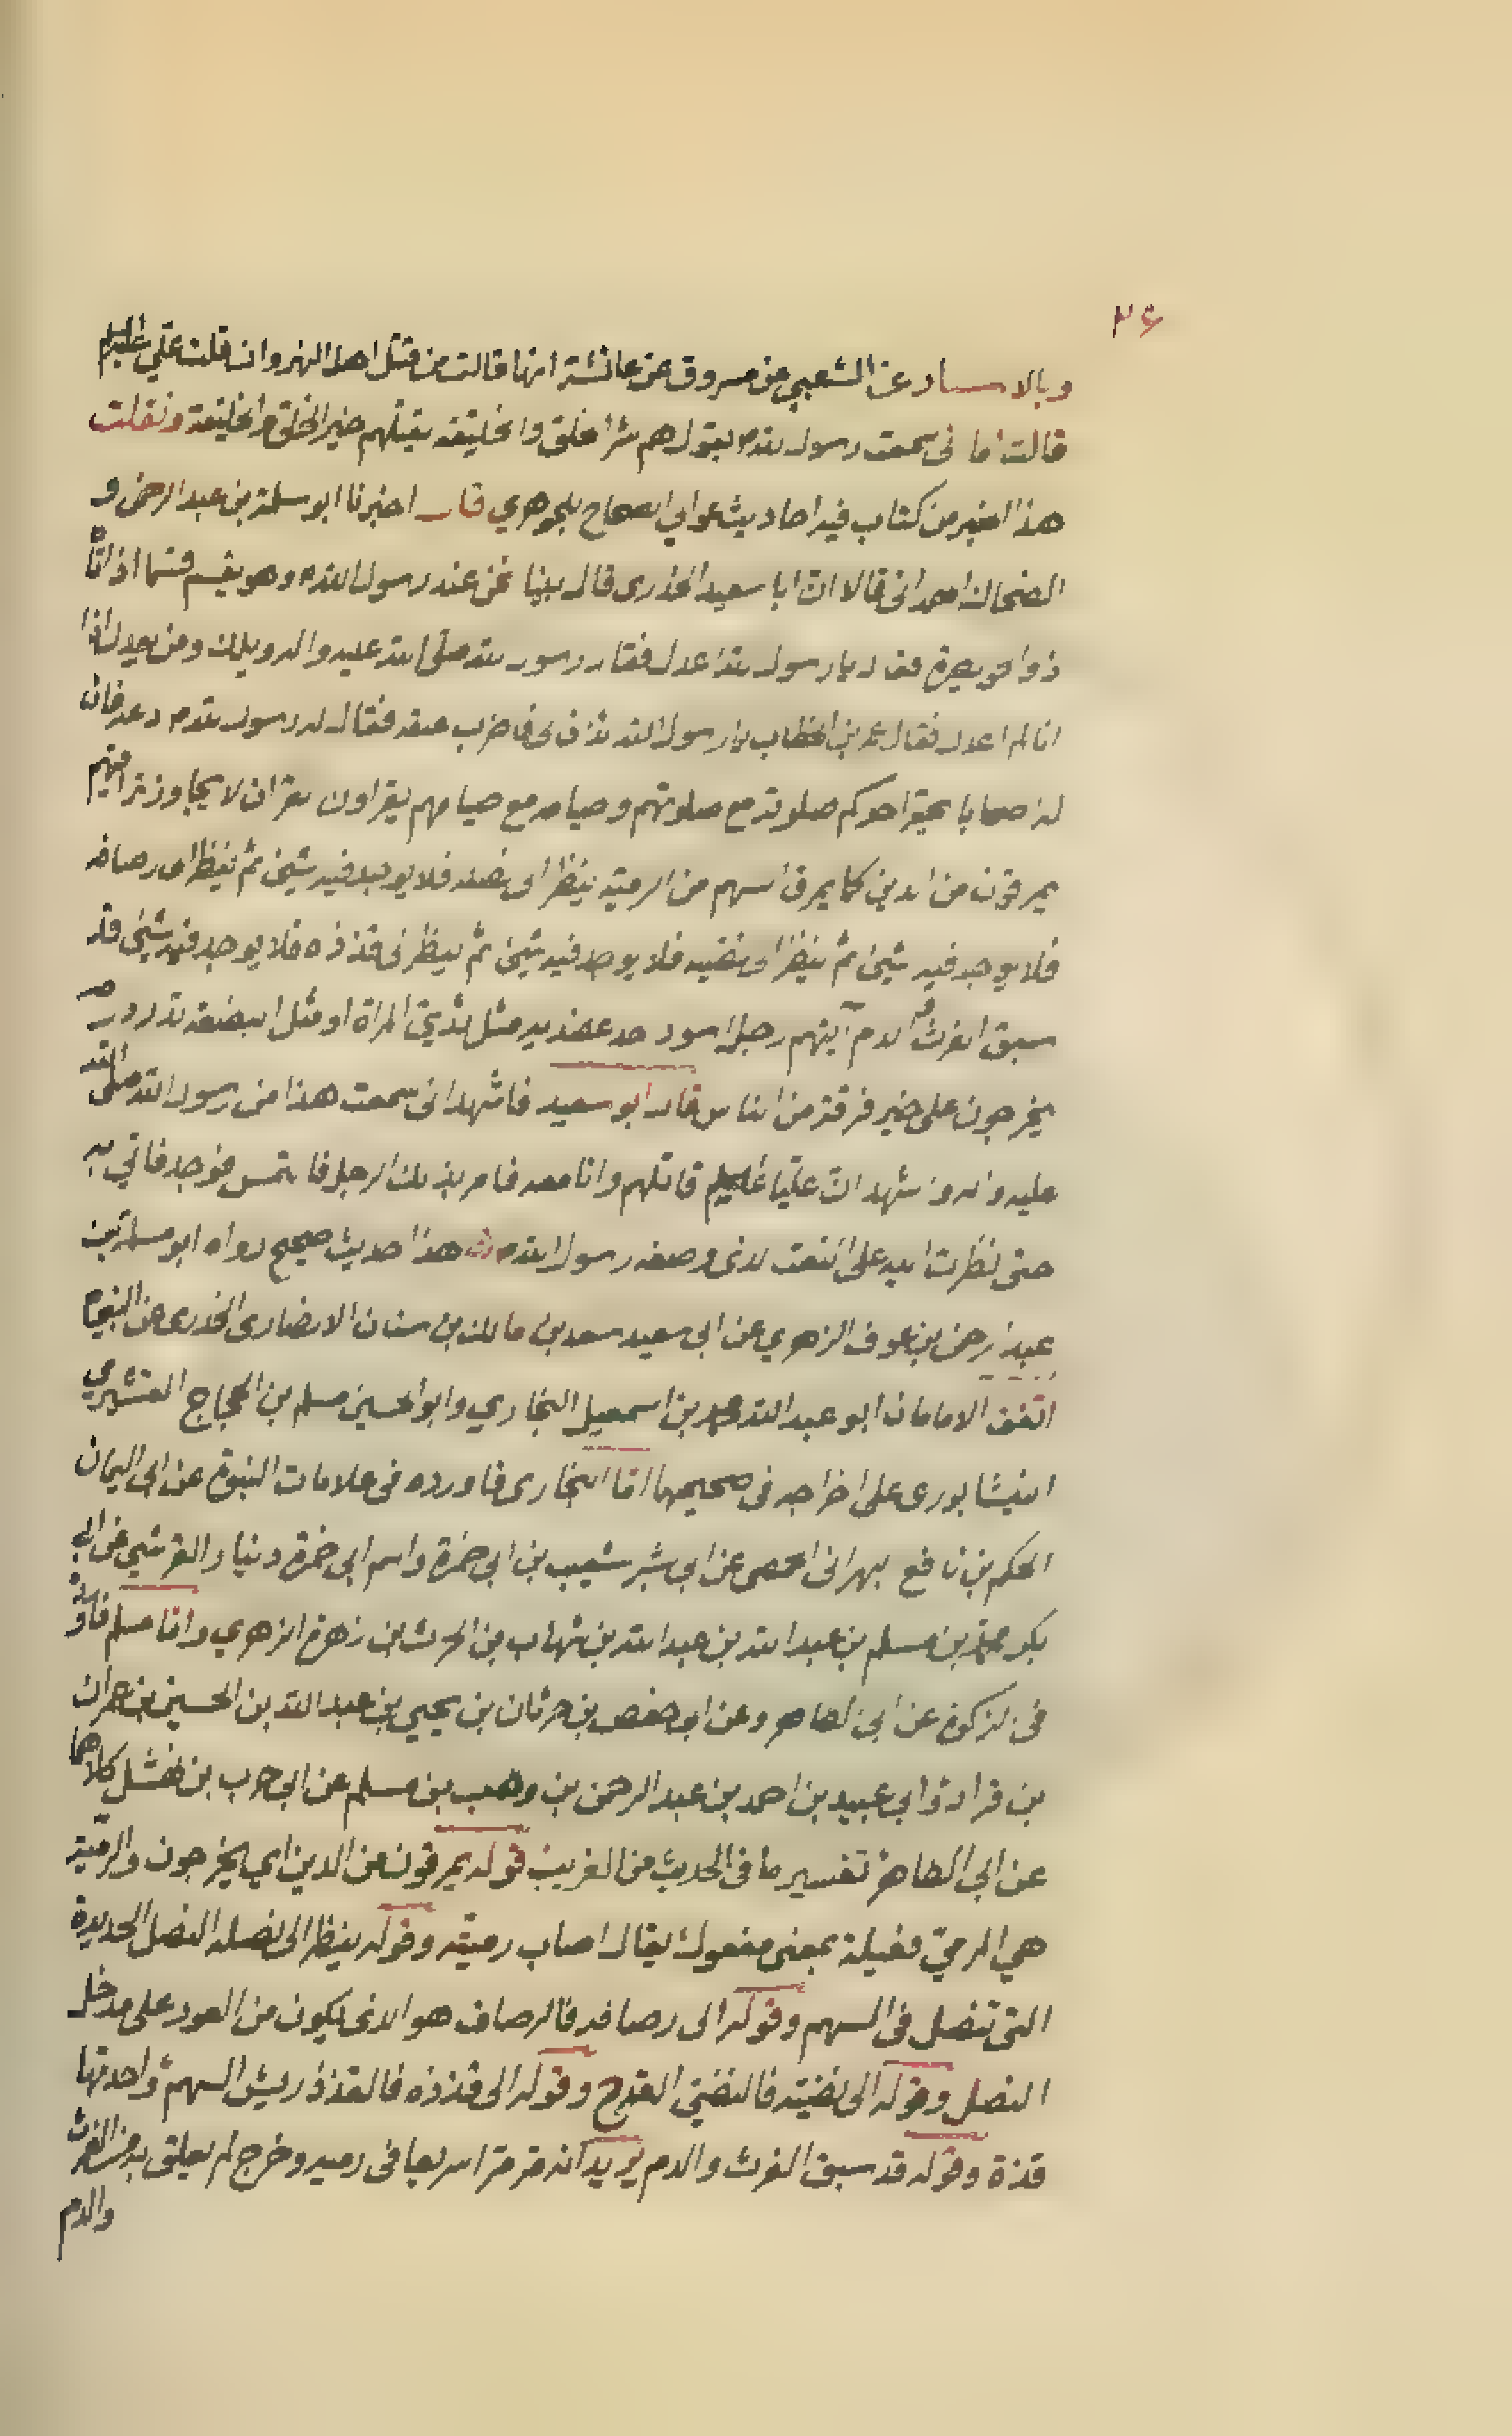 ٢٤
وبالاسناد عن الشعبي عن مسروق عن عائشة انها قالت من قتل اهل النهروان قلت علي عليه السلم
قالت اما انى سمعت رسول الله م يقول هم شر الخلق والخليقة يقتلهم خير الخلق والخليقة ونقلت
هذا الخبر من كتاب فيه احاديث عوالي الصحاح للجوهري قال اخبرنا ابو سلمة بن عبد الرحمن و
الضحاك الهمدانى قالا ان ابا سعيد الخدرى قال بينا نحن عند رسول الله م وهو يقسم قسما اذ اتاه
ذو الخويصرة فقال يا رسول الله اعدل فقال رسول الله صلى الله عليه واله ويلك ومن يعدل اذا
انا لم اعدل فقال عمر بن الخطاب يا رسول الله ائذن لى فاضرب عنقه فقال له رسول الله م دعه فان
له اصحابا يحقر احدكم صلوته مع صلوتهم وصيامه مع صيامهم يقراون القران لا يجاوز تراقيهم
يمرقون من الدين كما يمرق السهم من الرمية ينظر الى نصله فلا يوجد فيه شيئ ثم ينظر الى رصافه
فلا يوجد فيه شيئ ثم ينظر الى نضيه فلا يوجد فيه شيئ ثم ينظر فى قذذه فلا يوجد فيه شيئ قد
سبق الفرث والدم آيتهم رجل اسود احد عضديه مثل ثدي المراة او مثل البضعة تدردر
يخرجون على خير فرقة من الناس قال ابو سعيد فاشهد انى سمعت هذا من رسول الله صلى الله
عليه واله واشهد ان عليا عليه السلم قاتلهم وانا معه فامر بذلك الرجل فالتمس فوجد فاتي به
حتى نظرت اليه على النعت الذى وصفه رسول الله م هذا حديث صحيح رواه ابو سلمة بن
عبد الرحمن بن عوف الزهري عن ابى سعيد سعد بن مالك بن سنان الانصارى الخدرى عن النبى م
اتفق الامامان ابو عبد الله محمد بن اسمعيل البخاري وابو الحسين مسلم بن الحجاج القشيري
النيشابورى على اخراجه فى صحيحهما اما البخارى فاورده فى علامات النبوة عن ابى اليمان
الحكم بن نافع البهرانى الحمصى عن ابى بشر شعيب بن ابى حمزة واسم ابى حمزة دينار القرشي عن ابى
بكر محمد بن مسلم بن عبد الله بن عبد الله بن شهاب بن الحرث بن زهرة الزهري واما مسلم فاورده
فى الزكوة عن ابى الطاهر وعن ابو حفص بن حرثان بن يحيى بن عبد الله بن الحسين بن عمران
بن قراد وابي عبيد بن احمد بن عبد الرحمن بن وهب بن مسلم عن ابى حرب بن نهشل كلاهما
عن ابى الطاهر تفسير ما فى الحديث من الغريب قوله يمرقون عن الدين اى يخرجون والرمية
هي المرمي فعيلة بمعنى مفعولة يقال اصاب رميته وقوله ينظر الى نصله النصل الحديدة
التى تنصل فى السهم وقوله الى رصافه فالرصاف هو الذى يكون من العود على مدخل
النصل وقوله الى نضيته فالنضي القدح وقوله الى قذذه فالقذذ ريش السهم واحدتها
قذة وقوله قد سبق الفرث والدم يريد انه مر مرا سريعا فى رميه وخرج لم يعلق به من الفرث
والدم